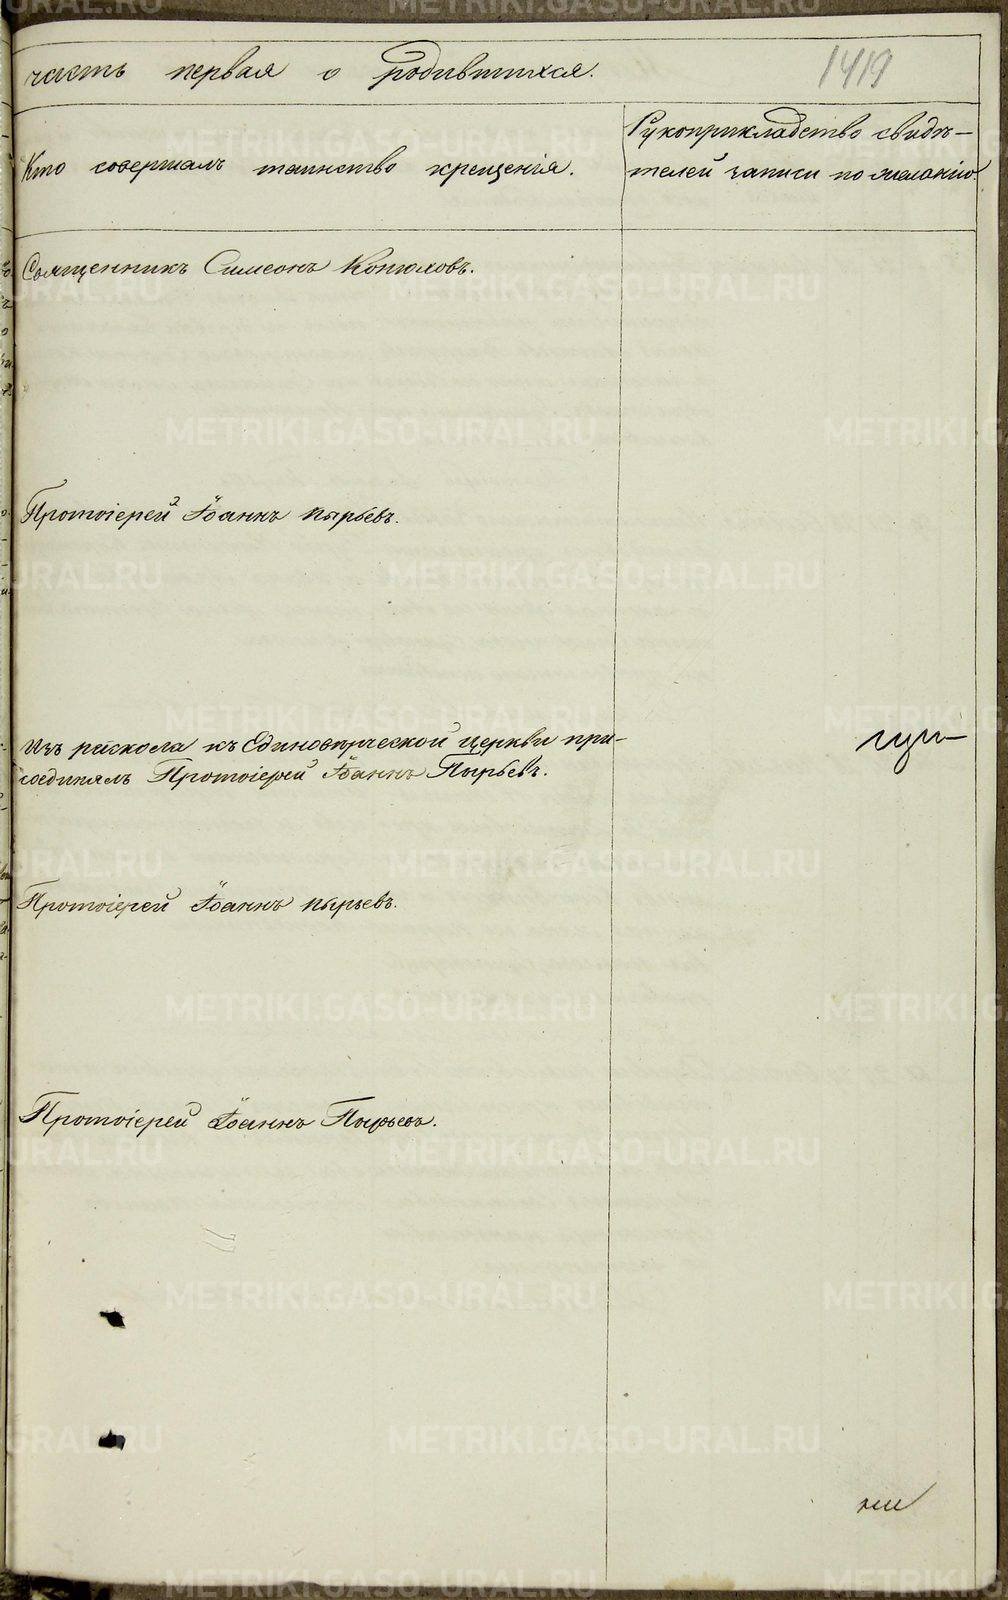 часть первая о родившихся.
1419
Кто совершалъ таинство крещенія.
Рукоприкладство свидѣ-
телей записи по желанію.
Священникъ Симеонъ Конюховъ.
Протоіерей Іоаннъ Пырьевъ.
Изъ раскола къ Единовѣрческой церкви при-
соединялъ Протоіерей Іоаннъ Пырьевъ.
Протоіерей Іоаннъ Пырьевъ.
Протоіерей Іоаннъ Пырьевъ.
METRIKI.GASO-URAL.RU